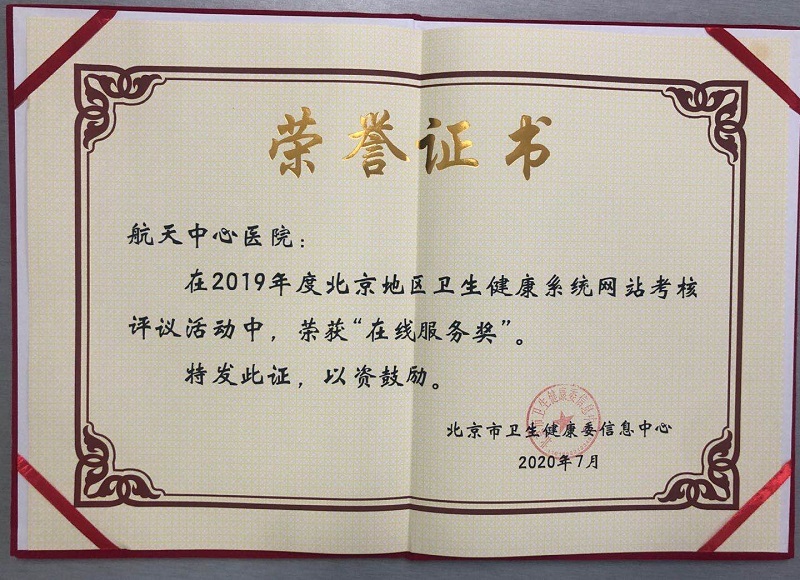 荣誉证书
航天中心医院：
在2019年度北京地区卫生健康系统网站考核
评议活动中，荣获“在线服务奖”。
特发此证，以资鼓励。
北京市卫生健康委信息中心
2020年7月